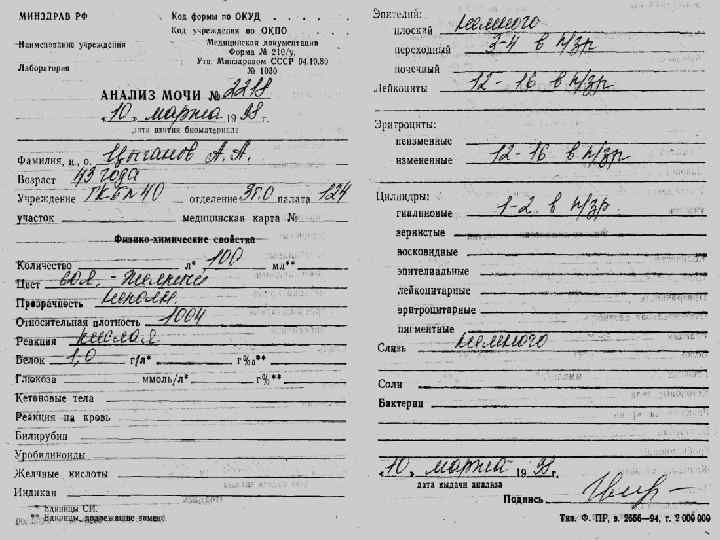 МИНЗДРАВ РФ
Код формы по ОКУД . . . . .
Код учреждения по ОКПО . . . .
Наименование учреждения
Медицинская документация
Форма № 210/у.
Утв. Минздравом СССР 04.10.80
№ 1030
Лаборатория
АНАЛИЗ МОЧИ № 2218
„10„ марта 1998 г.
дата взятия биоматериала
Фамилия, и., о. Цыганов А. А.
Возраст 43 года
Учреждение ГКБ № 40 отделение 3т.о палата 124
участок медицинская карта №
Физико-химические свойства
Количество л* 100 мл**
Цвет сол. - желтый
Прозрачность неполн.
Относительная плотность 1004
Реакция кислая
Белок 1,0 г/л* г%₀**
Глюкоза ммоль/л* г%**
Кетоновые тела
Реакция на кровь
Билирубин
Уробилиноиды
Желчные кислоты
Индикан
* Единицы СИ.
** Единицы, подлежащие замене
Эпителий:
плоский немного
переходный 3-4 в п/зр
почечный
Лейкоциты 12 - 16 в п/зр
Эритроциты:
неизменные
измененные 12-16 в п/зр
Цилиндры:
гиалиновые 1-2 в п/зр
зернистые
восковидные
эпителиальные
лейкоцитарные
эритроцитарные
пигментные
Слизь немного
Соли
Бактерии
„10„ марта 1998 г.
дата выдачи анализа
Подпись
Тип. Ф. ПР, в. 2656—94, т. 2 000 000